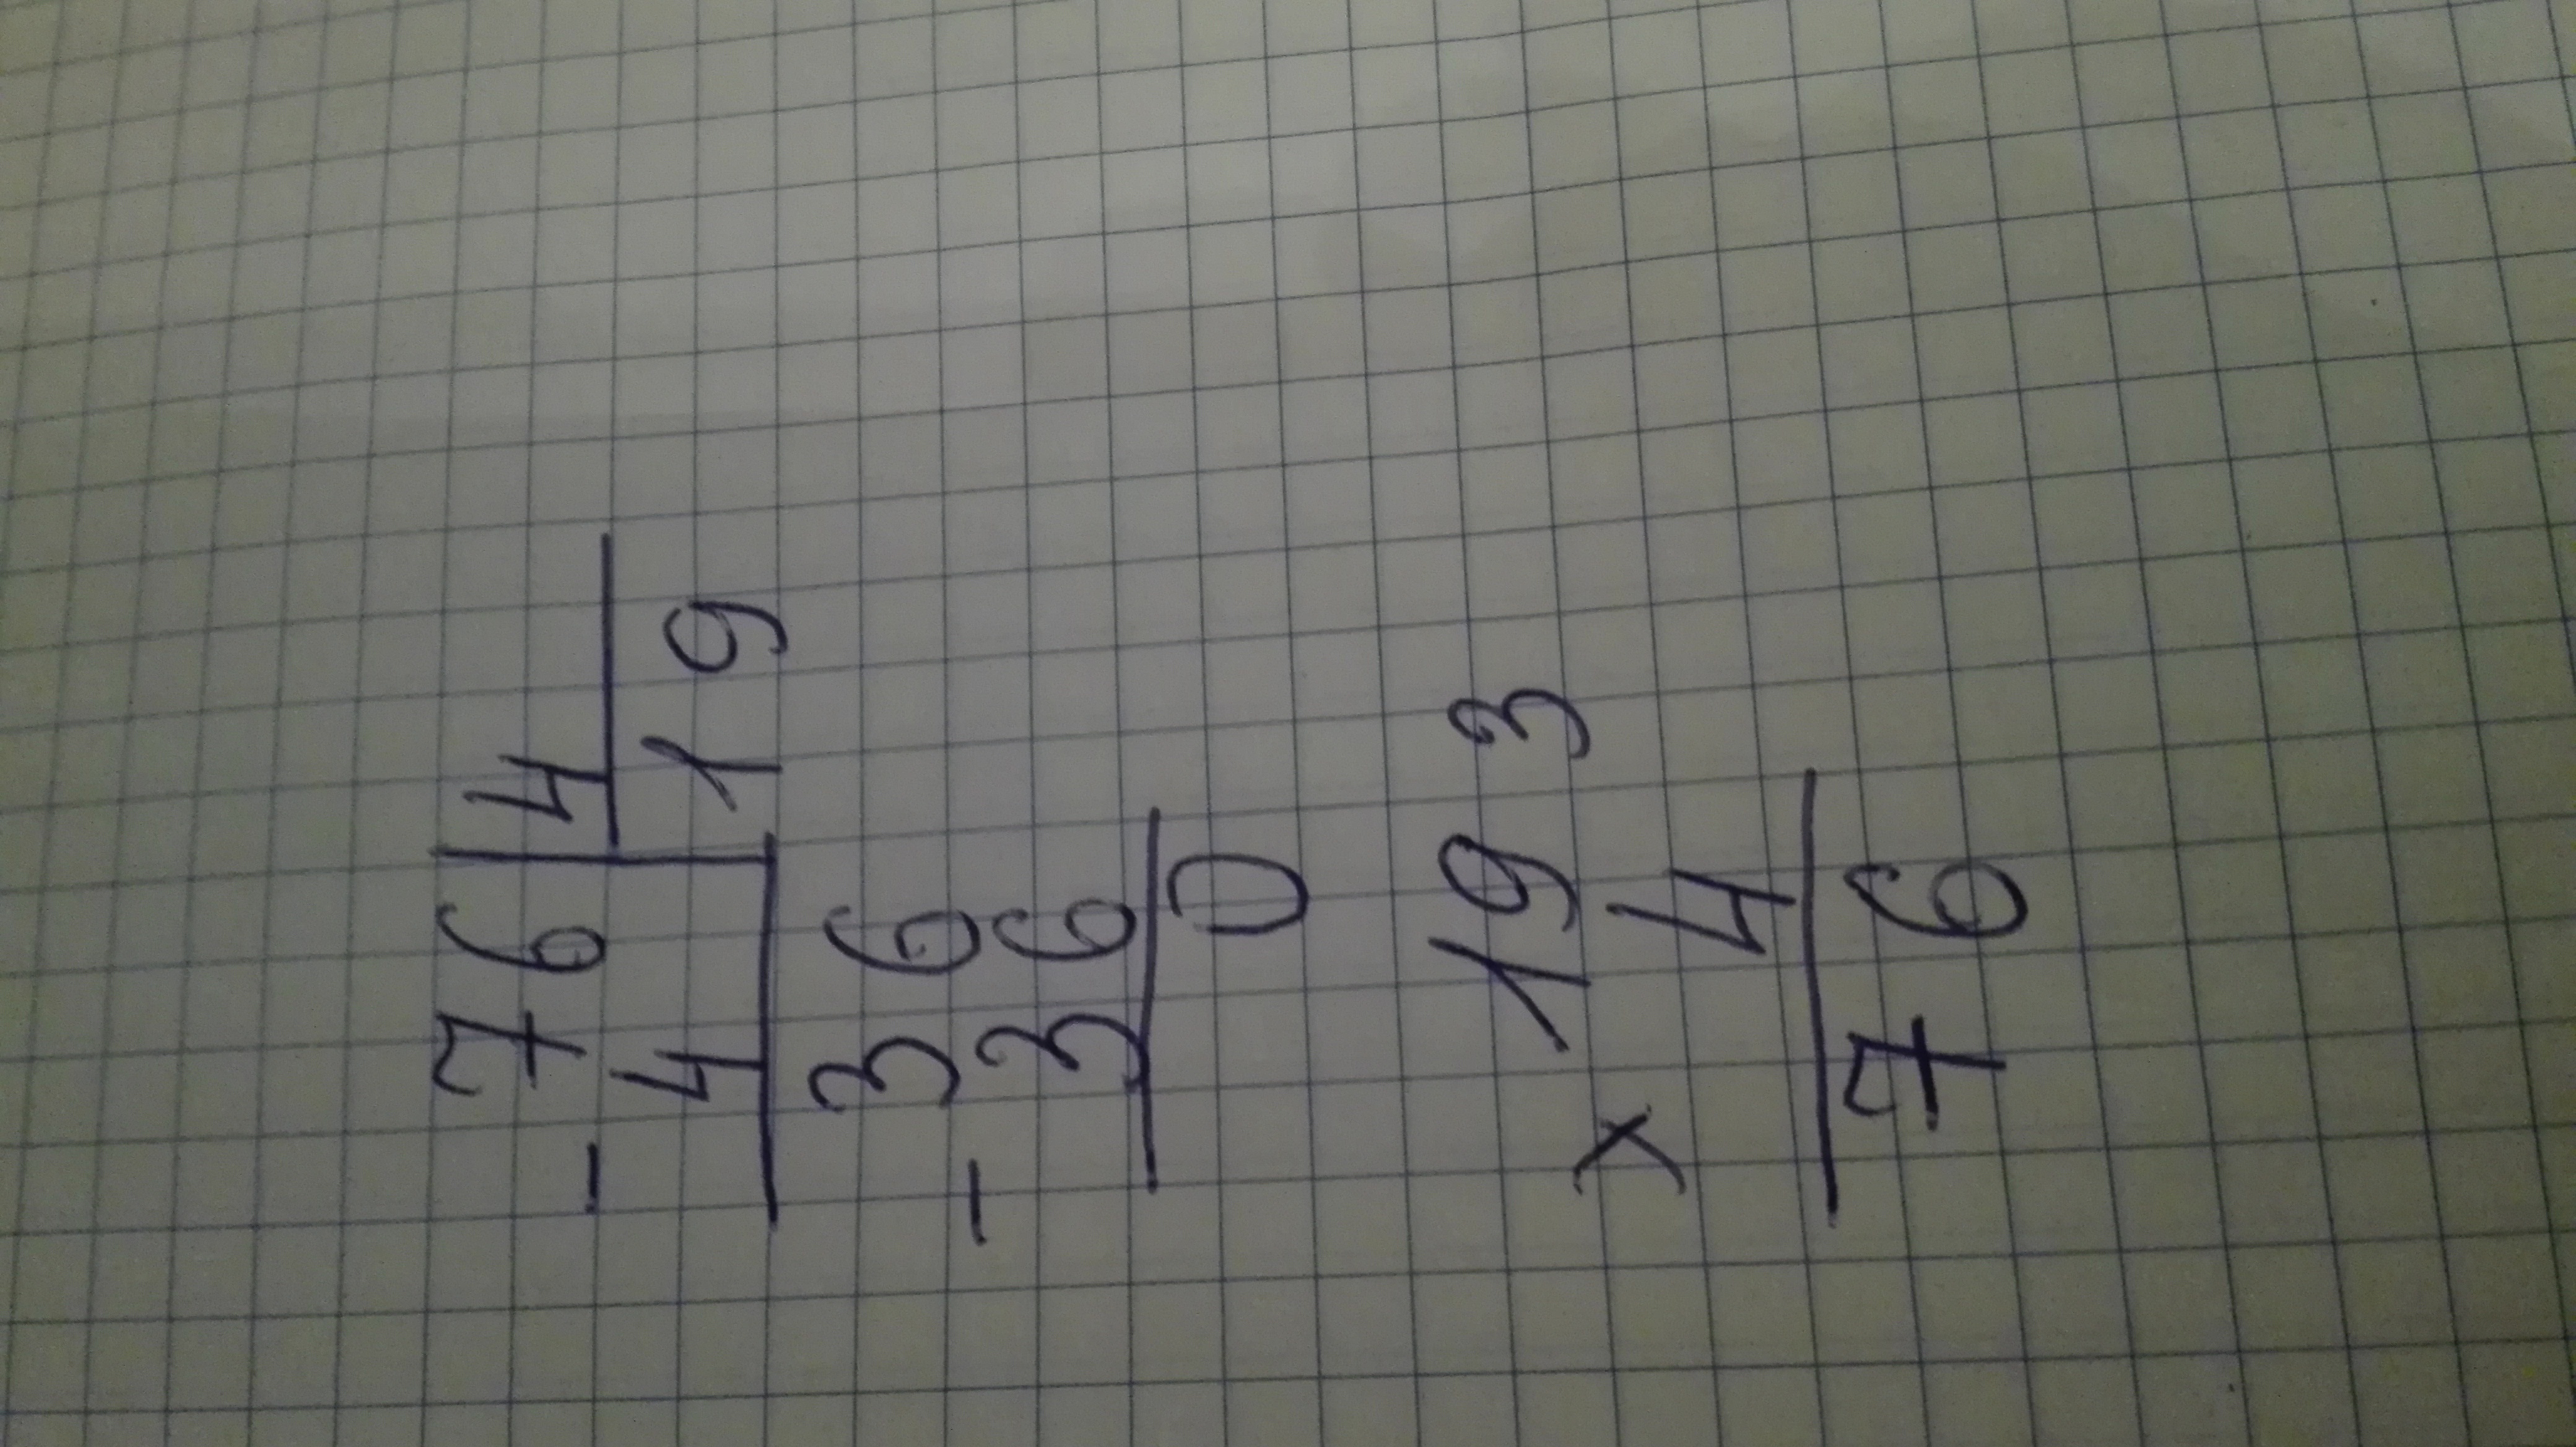 76 4
- 4 19
36
- 36
0
19 3
x 4
76